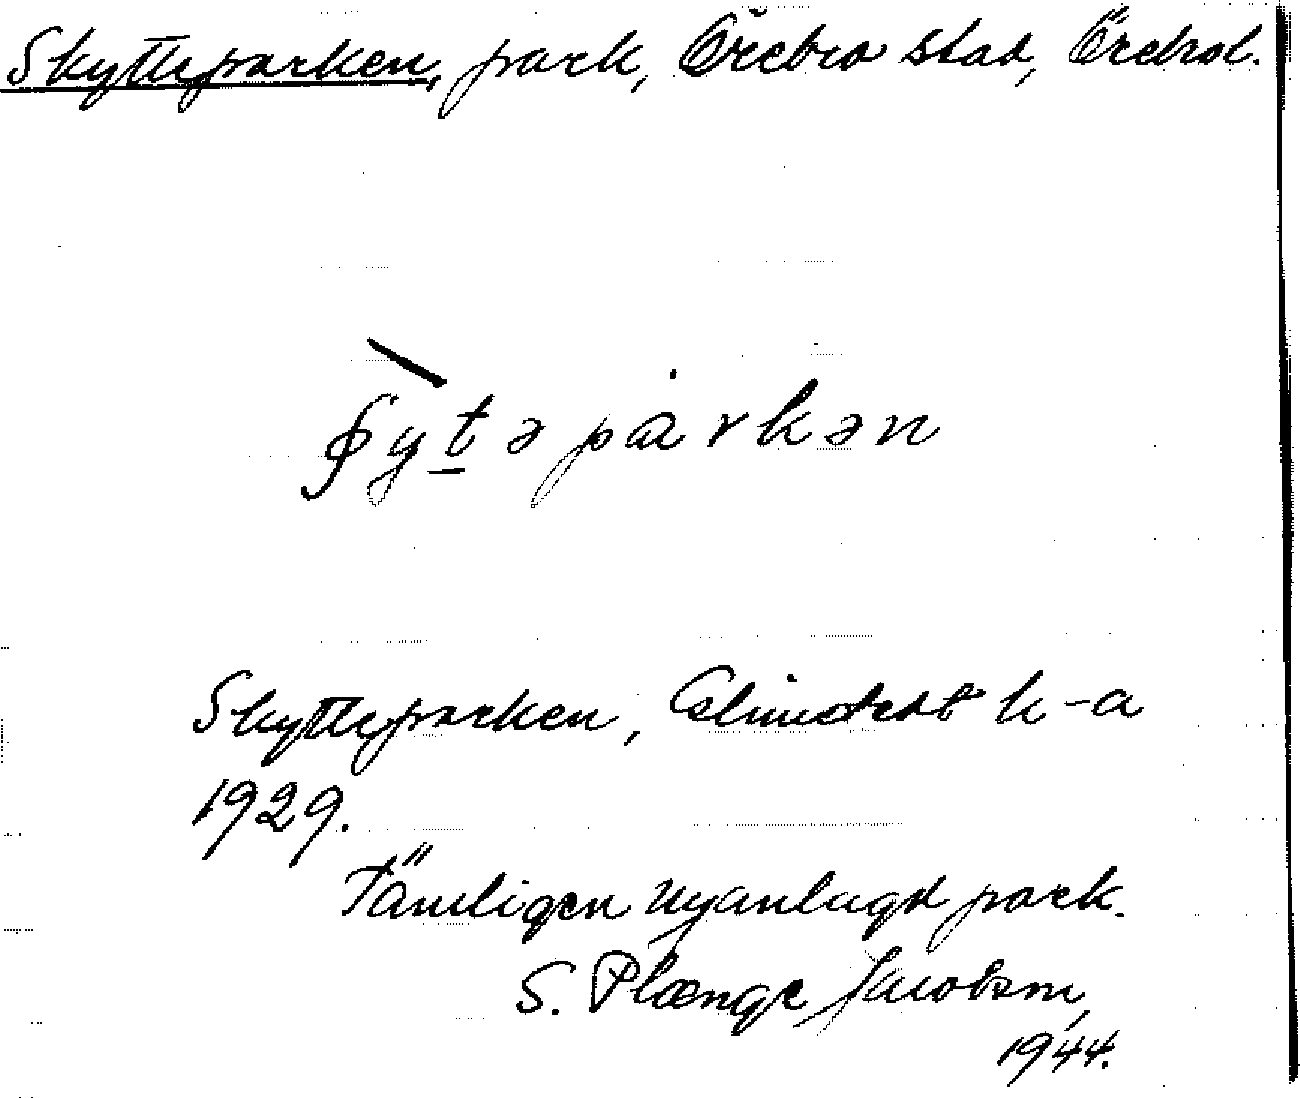 Skytteparken, park, Örebro stad, Örebrol.
ʃytəpàrkən
Skytteparken, Almstedt k-a
1929.
Tämligen nyanlagd park.
S. Plænge Jacobson,
1944.